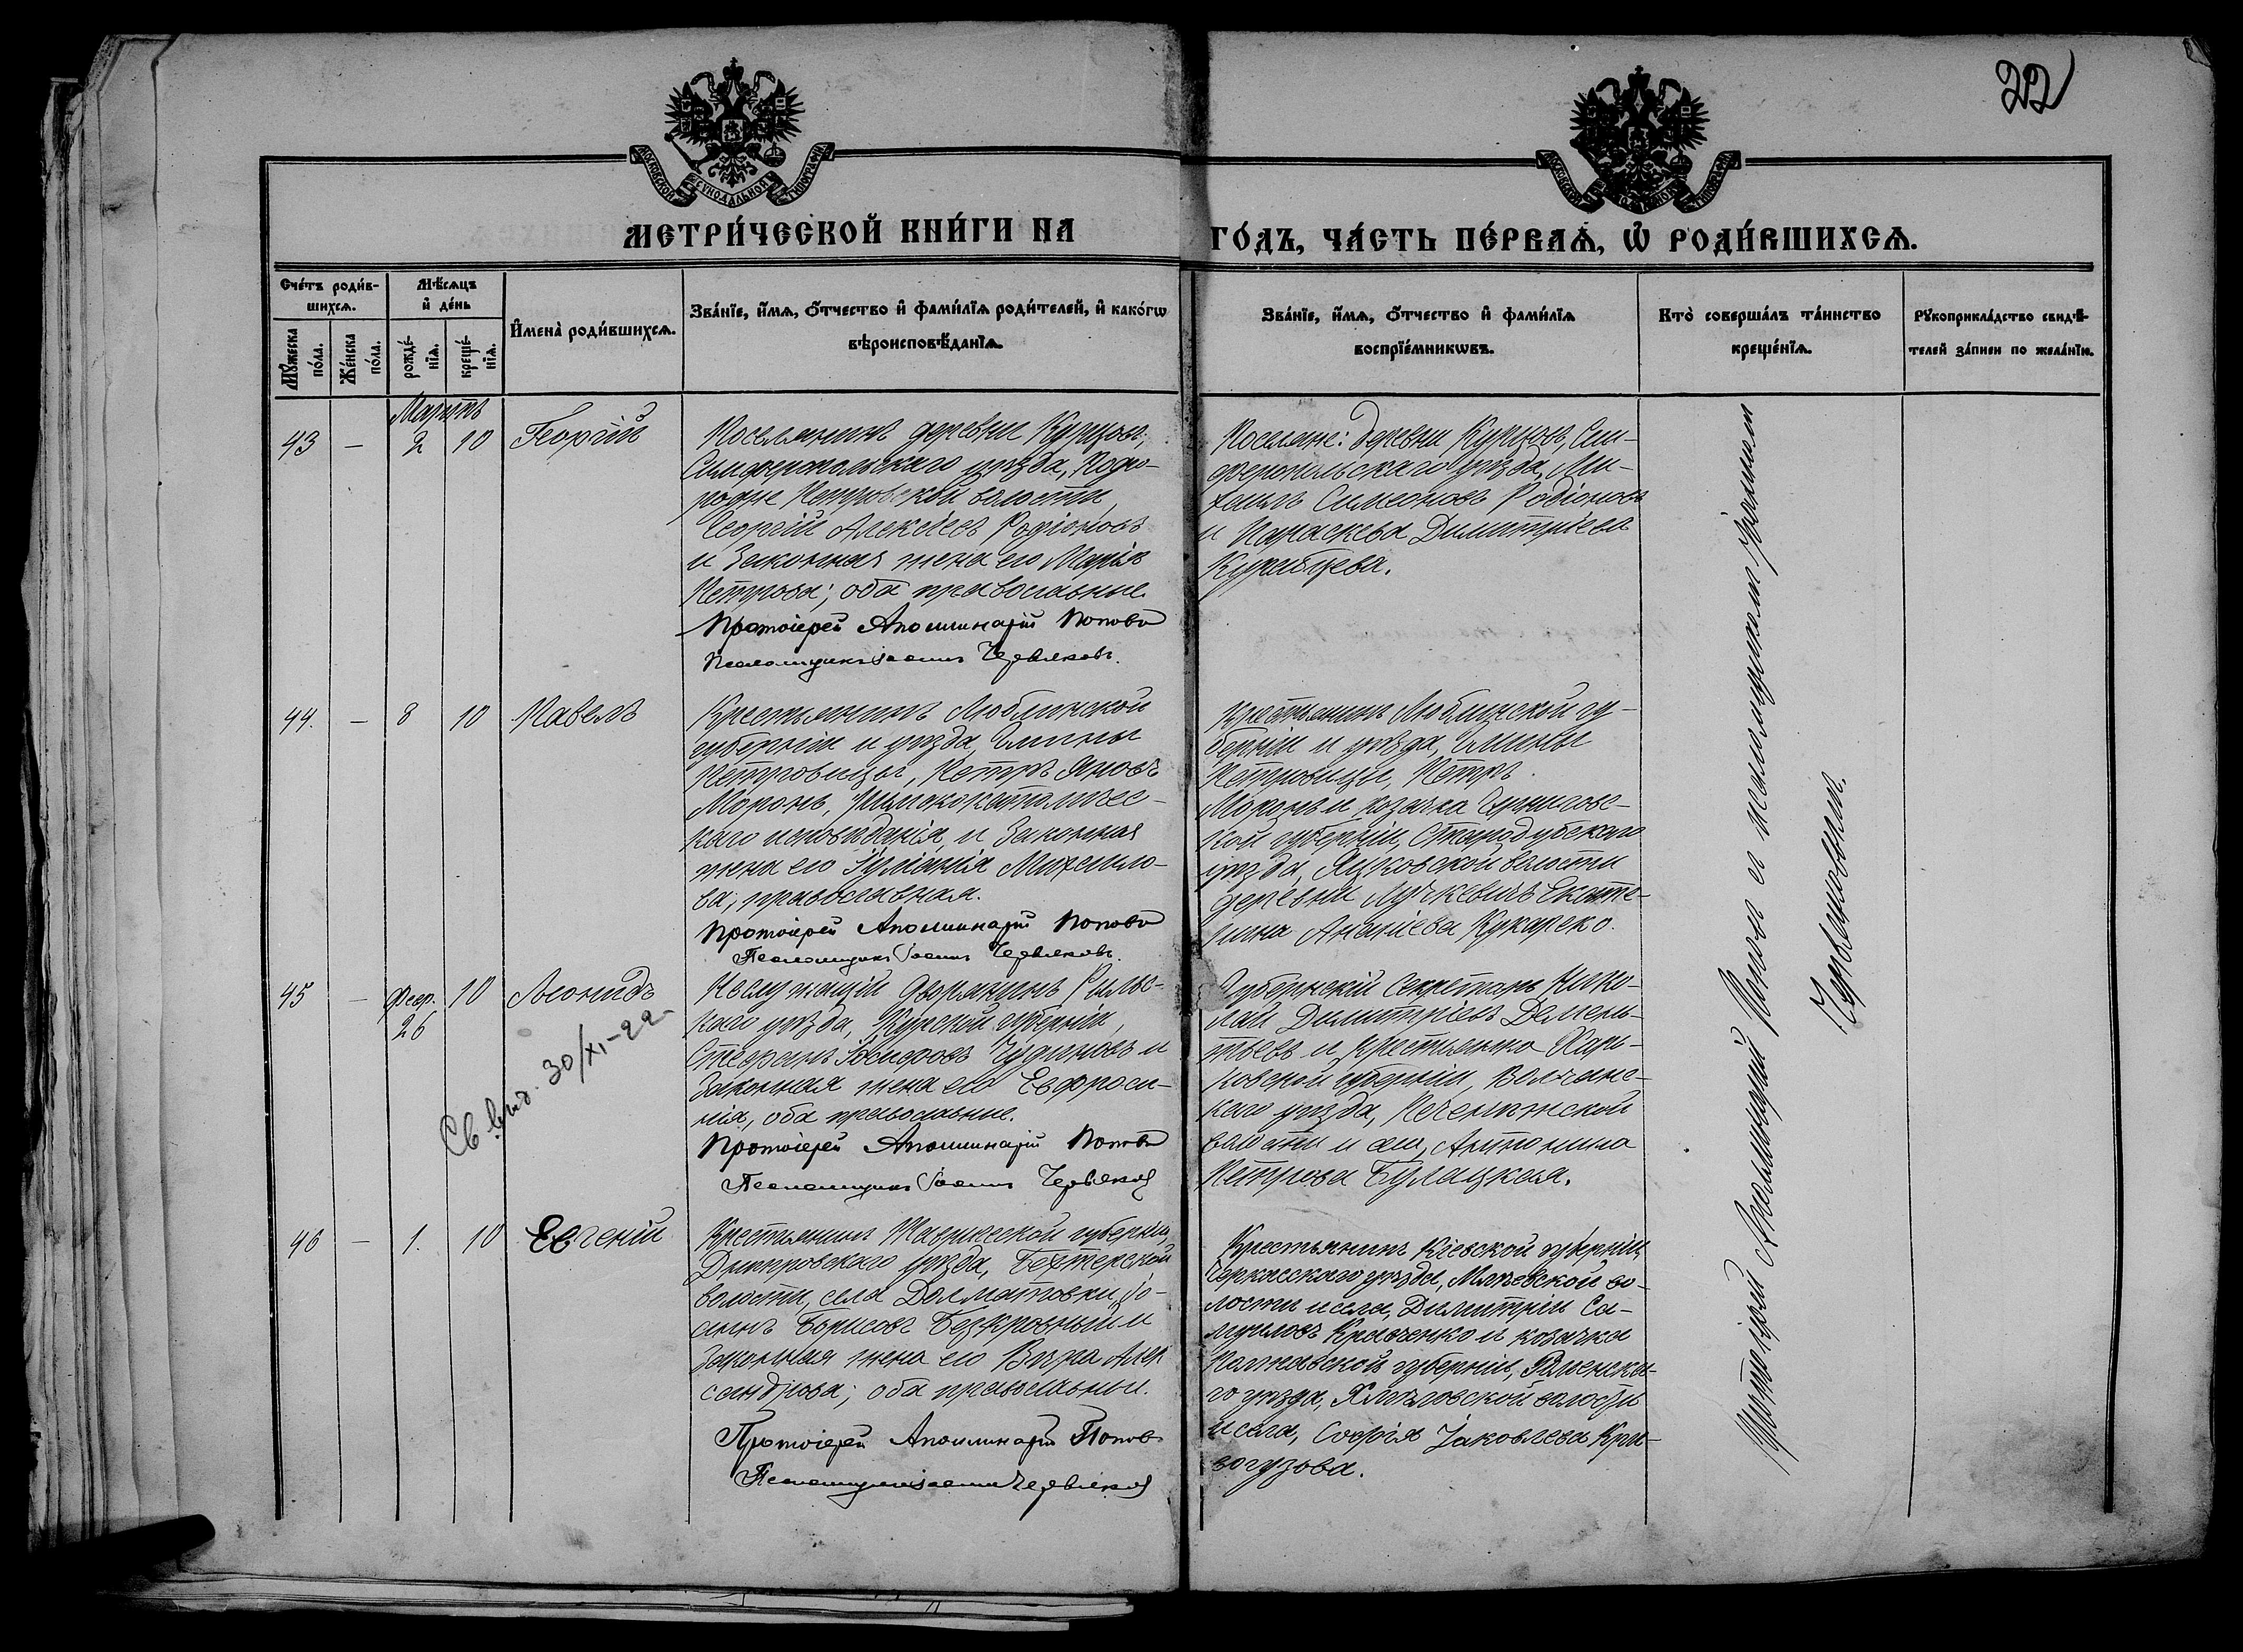 22
МОСКОВСКОЙ СУНОДАЛЬНОЙ ТИПОГРАФIИ
МЕТРИ́ЧЕСКОЙ КНИ́ГИ НА ГО́ДЪ, ЧА́СТЬ ПЕ́РВАѦ, Ѽ РОДИ́ВШИХСѦ.
Сче́тъ роди́в-
шихсѧ.
Мѣ́сѧцъ
и҆ де́нь
Мꙋ́жеска
по́ла.
Же́нска
по́ла.
рожде́-
нїѧ.
креще́-
нїѧ.
И҆мена̀ роди́вшихсѧ.
Зва́нїе, и҆́мѧ, ѻ҆́тчество и҆ фами́лїѧ роди́телей, и҆ како́гѡ
вѣроисповѣ́данїѧ.
Зва́нїе, и҆́мѧ, ѻ҆́тчество и҆ фами́лїѧ
воспрїе́мникѡвъ.
Кто̀ соверша́лъ та́инство
креще́нїѧ.
Рꙋкоприкла́дство свидѣ́-
телей за́писи по жела́нїю.
Мартъ
43 — 2 10 Георгій
Поселянинъ деревни Курцовъ,
Симферопольскаго уѣзда, Подго-
родне Петровской волости,
Георгій Алексѣевъ Родіоновъ
и законная жена его Марія
Петрова; оба православные.
Протоіерей Аполлинарій Поповъ
Псаломщикъ Іоаннъ Червяковъ.
Поселяне: деревни Курцовъ, Сим-
феропольскаго уѣзда, Ми-
хаилъ Симеоновъ Родіоновъ
и Параскева Димитріева
Курабцева.
44. — 8 10 Павелъ
Крестьянинъ Люблинской
губерніи и уѣзда, Гмины
Петровицы, Петръ Яновъ
Моронь, римскокатоличес-
каго исповѣданія, и законная
жена его Іуліанія Михаило-
ва, православная.
Протоіерей Аполлинарій Поповъ
Псаломщикъ Іоаннъ Червяковъ.
Крестьянинъ Люблинской гу-
берніи и уѣзда, Гмины
Петровицы, Петръ
Моронь и козачка Чернигов-
ской губерніи, Стародубскаго
уѣзда, Яцковской волости
деревни Лучкевичъ Екате-
рина Ананіева Кукареко.
45 — Февр. 26 10 Леонидъ
Св. выд. 30/XI-22
Неслужащій дворянинъ Рыльс-
каго уѣзда, Курской губерніи,
Стефанъ Іосифовъ Чудиновъ и
законная жена его Евфроси-
нія, оба православные.
Протоіерей Аполлинарій Поповъ
Псаломщикъ Іоаннъ Червяковъ
Губернскій Секретарь Нико-
лай Димитріевъ Демень-
тьевъ и крестьянка Харь-
ковской губерніи, Волчанс-
каго уѣзда, Печенѣжской
волости и села, Антонина
Петрова Булацкая.
46 — 1. 10 Евгеній
Крестьянинъ Таврической губерніи,
Днѣпровскаго уѣзда, Бехтерской
волости, села Долматовки, Іо-
аннъ Борисовъ Безкровный и
законная жена его Вѣра Алек
сандрова; оба православные.
Протоіерей Аполлинарій Поповъ
Псаломщикъ Іоаннъ Червяковъ
Крестьянинъ Кіевской губерніи,
Черкасскаго уѣзда, Млѣевской во-
лости и села, Димитрій Са-
муиловъ Кравченко и козачка
Полтавской губерніи, Роменска-
го уѣзда, Хмѣловской волости
и села, Софія Іаковлева Кри-
вогузова.
Протоіерей Аполлинарій Поповъ съ псаломщикомъ Іоанномъ
Червяковымъ.